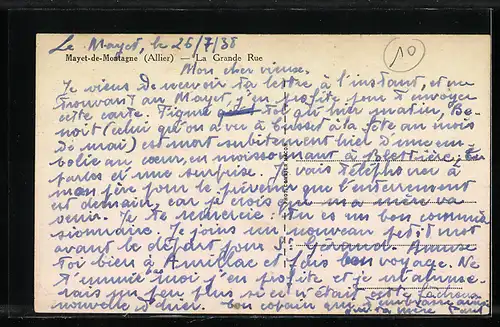 Le Mayet, le 26/7/38
10
Mayet-de-Montagne (Allier) — La Grande Rue
Mon cher vieux.
Je viens de recevoir ta lettre à l'instant, et me
trouvant au Mayet, j'en profite pour t'envoyer
cette carte. Figure toi qu'hier matin, Be-
noit (celui qu'on a vu à Busset à la fête au mois
de mai) est mort subitement hier d'une em-
bolie au cœur, en moissonnant à
parles d'une surprise. Je vais téléphoner à
mon père pour le prévenir que l'enterrement
est demain, car je crois que ma mère va
venir. Je te remercie: tu es un bon commis-
sionnaire. Je joins un nouveau petit mot
avant le départ pour St Gérand. Amuse
toi bien à Aurillac et fais bon voyage. Ne
t'ennuie moi j'en profite et je m'amuse-
rais un peu plus si ce n'était cette fâcheuse
nouvelle d'hier. Ton copain qui t'embrasse ainsi
que ta mère